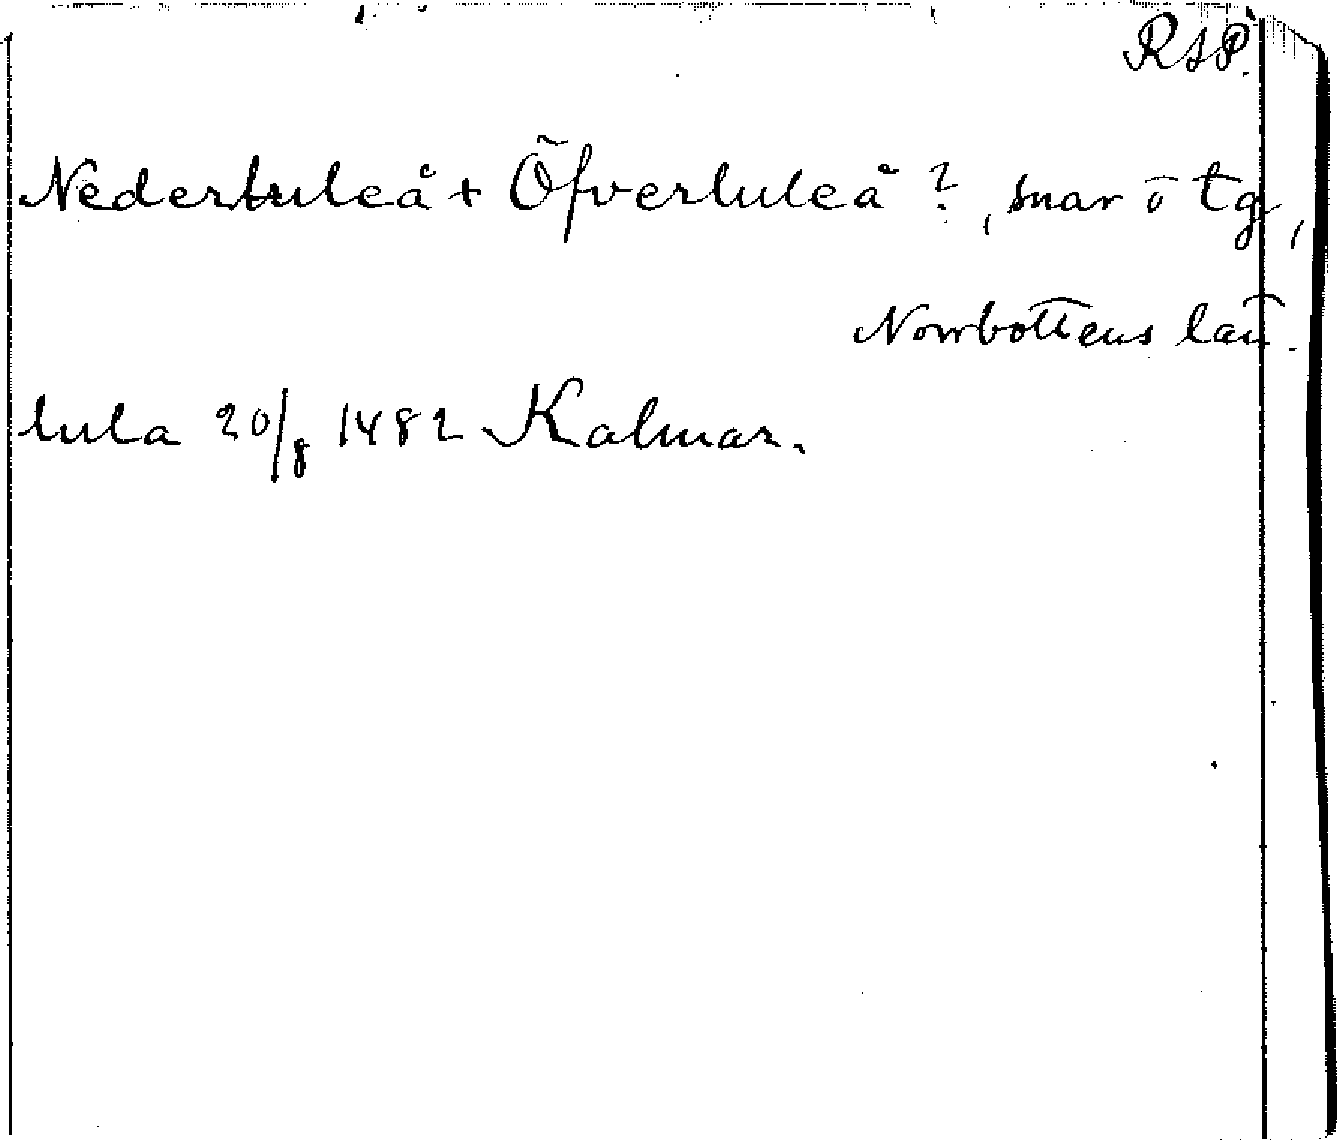 RAP.
Nederluleå + Öfverluleå ?, snar o tg,
Norrbottens län.
lula 20/8 1482 Kalmar.